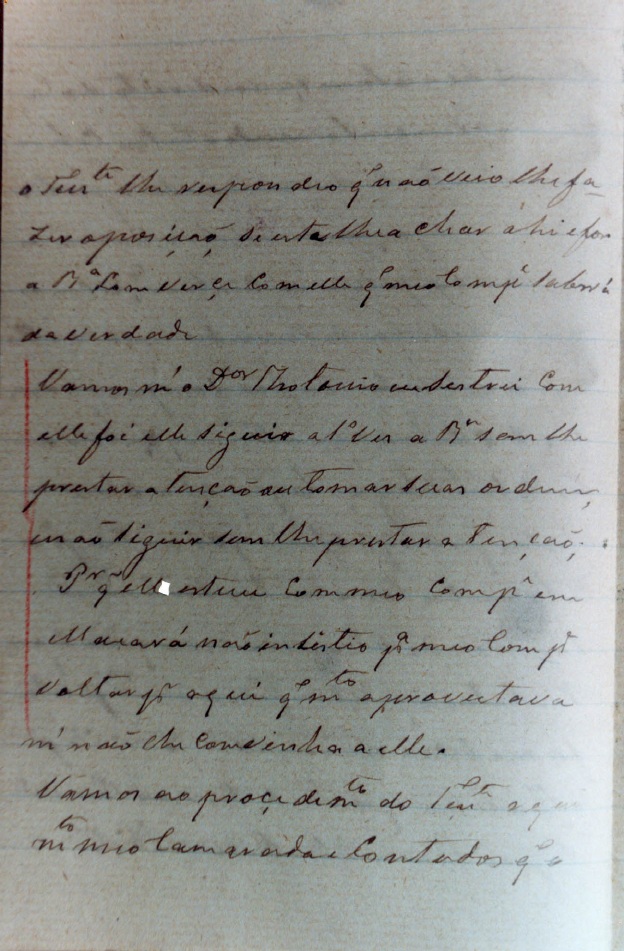 o Ten.te lhe respondeo q̃ não veio lhe fa-
zer aposição se esta lhe achar ahi e for
a B.a Comverça com elle q̃ meo Comp.e sabera
da verdade
Vamos m' o D.or
elle foi elle siguir a 1ª Ves a B.a sem lhe
prestar atenção ou tomar suas ordens,
e não siguir sem lhe prestar a tenção.
Pr q̃ elle esteve Com meo Comp.e em
não insistio p.a meo Comp.e
Voltar p.a aqui q̃ m.to aproveitava
m' não lhe comvinha a elle.
Vamos ao proçedim.to do Ten.te aqui
m.to meo Camarada e Com todos q̃ o